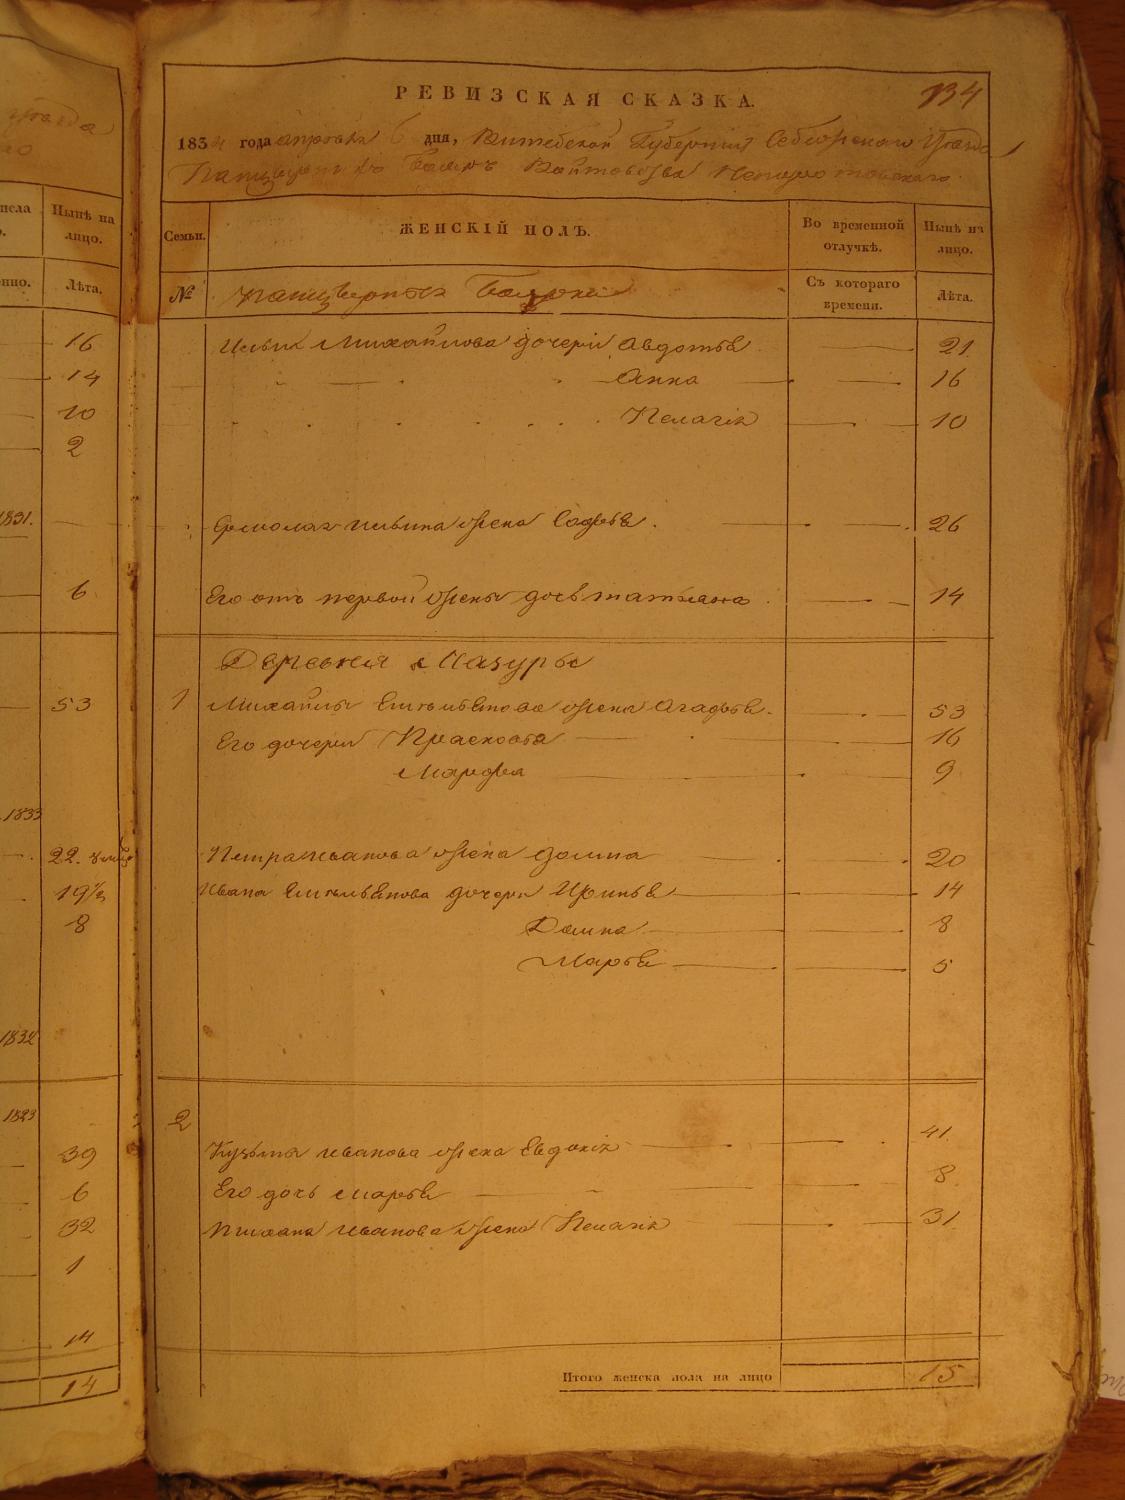 уѣзда
134
РЕВИЗСКАЯ СКАЗКА.
1834 года апрѣля 6 дня, Витебской Губерніи Себежскаго Уѣзда
числа
Нынѣ на
лицо.
Лѣта.
16
14
10
2
1831.
6
53
1833
22.
19½
8
1832
1823
39
6
32
1
14
14
Семьи.
ЖЕНСКІЙ ПОЛЪ.
Во временной
отлучкѣ.
Нынѣ на
лицо.
№
Съ котораго
времени.
Лѣта.
Ильи Михайлова дочери Авдотья 21
Анна 16
Пелагія 10
Ермолая Ильина жена Софья 26
Его отъ первой жены дочь Татьяна 14
Деревня Мазуры
1 Михайлы Емельянова жена Агафья 53
Его дочери Прасковья 16
Марфа 9
Петра Иванова жена Домна 20
Ивана Емельянова дочери Иринья 14
Домна 8
Марья 5
2
Кузьмы Иванова жена Евдокія 41
Его дочь Марья 8
Иванова жена Пелагія 31
Итого женска пола на лицо 15